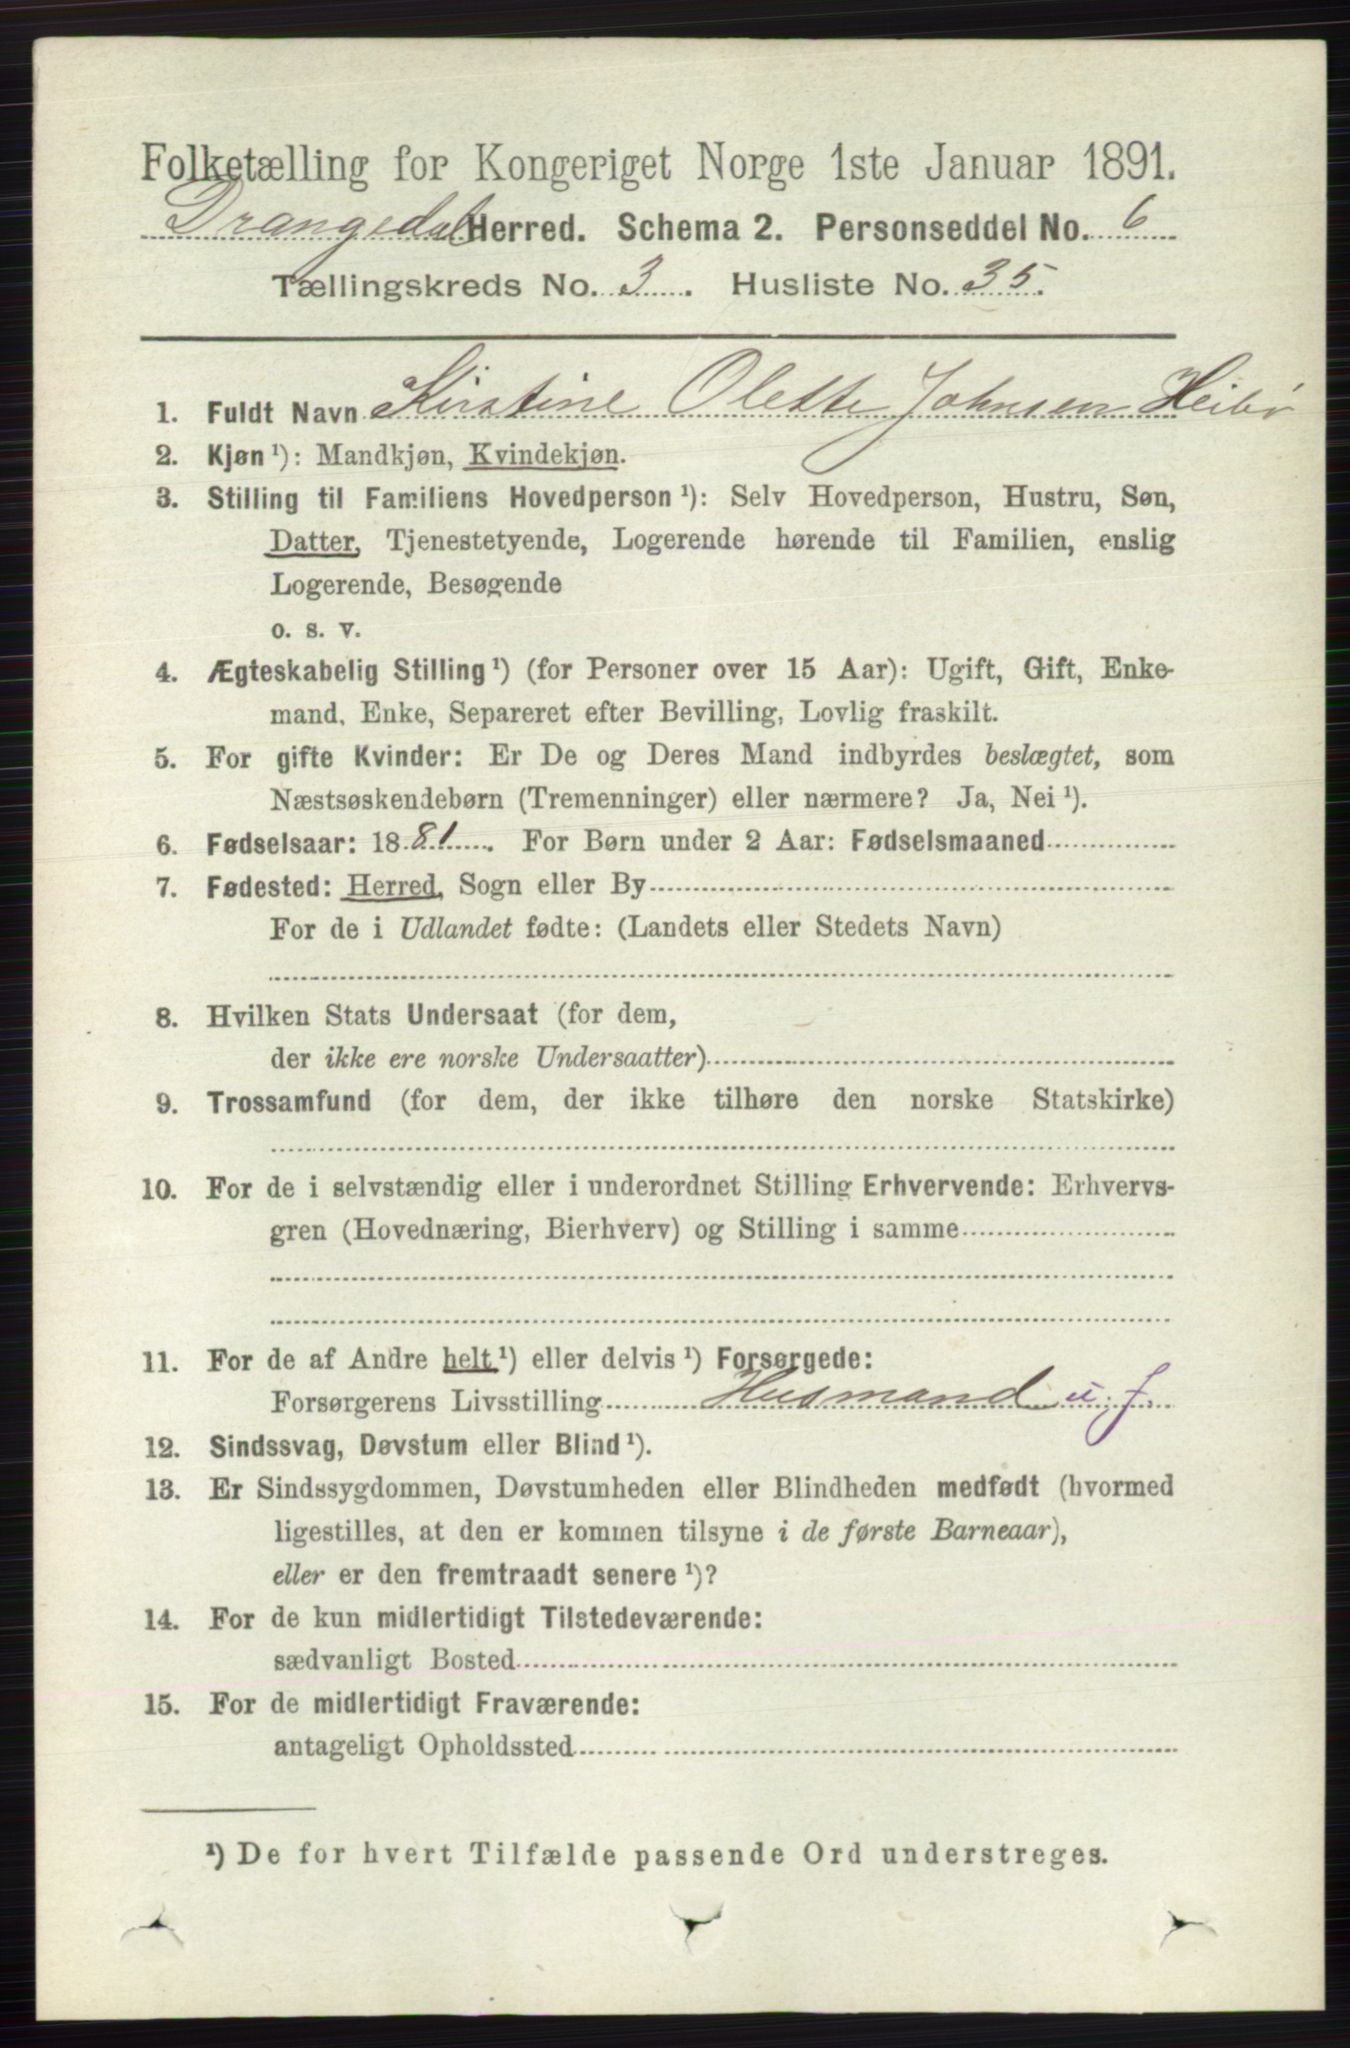 Folketælling for Kongeriget Norge 1ste Januar 1891.
Drangedal Herred. Schema 2. Personseddel No. 6
Tællingskreds No. 3. Husliste No. 35.
1. Fuldt Navn Kirstine Olette Johnsen Heibø
2. Kjøn ¹): Mandkjøn, Kvindekjøn.
3. Stilling til Familiens Hovedperson ¹): Selv Hovedperson, Hustru, Søn,
Datter, Tjenestetyende, Logerende hørende til Familien, enslig
Logerende, Besøgende
o. s. v.
4. Ægteskabelig Stilling ¹) (for Personer over 15 Aar): Ugift, Gift, Enke-
mand, Enke, Separeret efter Bevilling, Lovlig fraskilt.
5. For gifte Kvinder: Er De og Deres Mand indbyrdes beslægtet, som
Næstsøskendebørn (Tremenninger) eller nærmere? Ja, Nei ¹).
6. Fødselsaar: 1881. For Børn under 2 Aar: Fødselsmaaned
7. Fødested: Herred, Sogn eller By
For de i Udlandet fødte: (Landets eller Stedets Navn)
8. Hvilken Stats Undersaat (for dem,
der ikke ere norske Undersaatter)
9. Trossamfund (for dem, der ikke tilhøre den norske Statskirke)
10. For de i selvstændig eller i underordnet Stilling Erhvervende: Erhvervs-
gren (Hovednæring, Bierhverv) og Stilling i samme
11. For de af Andre helt ¹) eller delvis ¹) Forsørgede:
Forsørgerens Livsstilling Husmand u. j.
12. Sindssvag, Døvstum eller Blind ¹).
13. Er Sindssygdommen, Døvstumheden eller Blindheden medfødt (hvormed
ligestilles, at den er kommen tilsyne i de første Barneaar),
eller er den fremtraadt senere ¹)?
14. For de kun midlertidigt Tilstedeværende:
sædvanligt Bosted
15. For de midlertidigt Fraværende:
antageligt Opholdssted
¹) De for hvert Tilfælde passende Ord understreges.